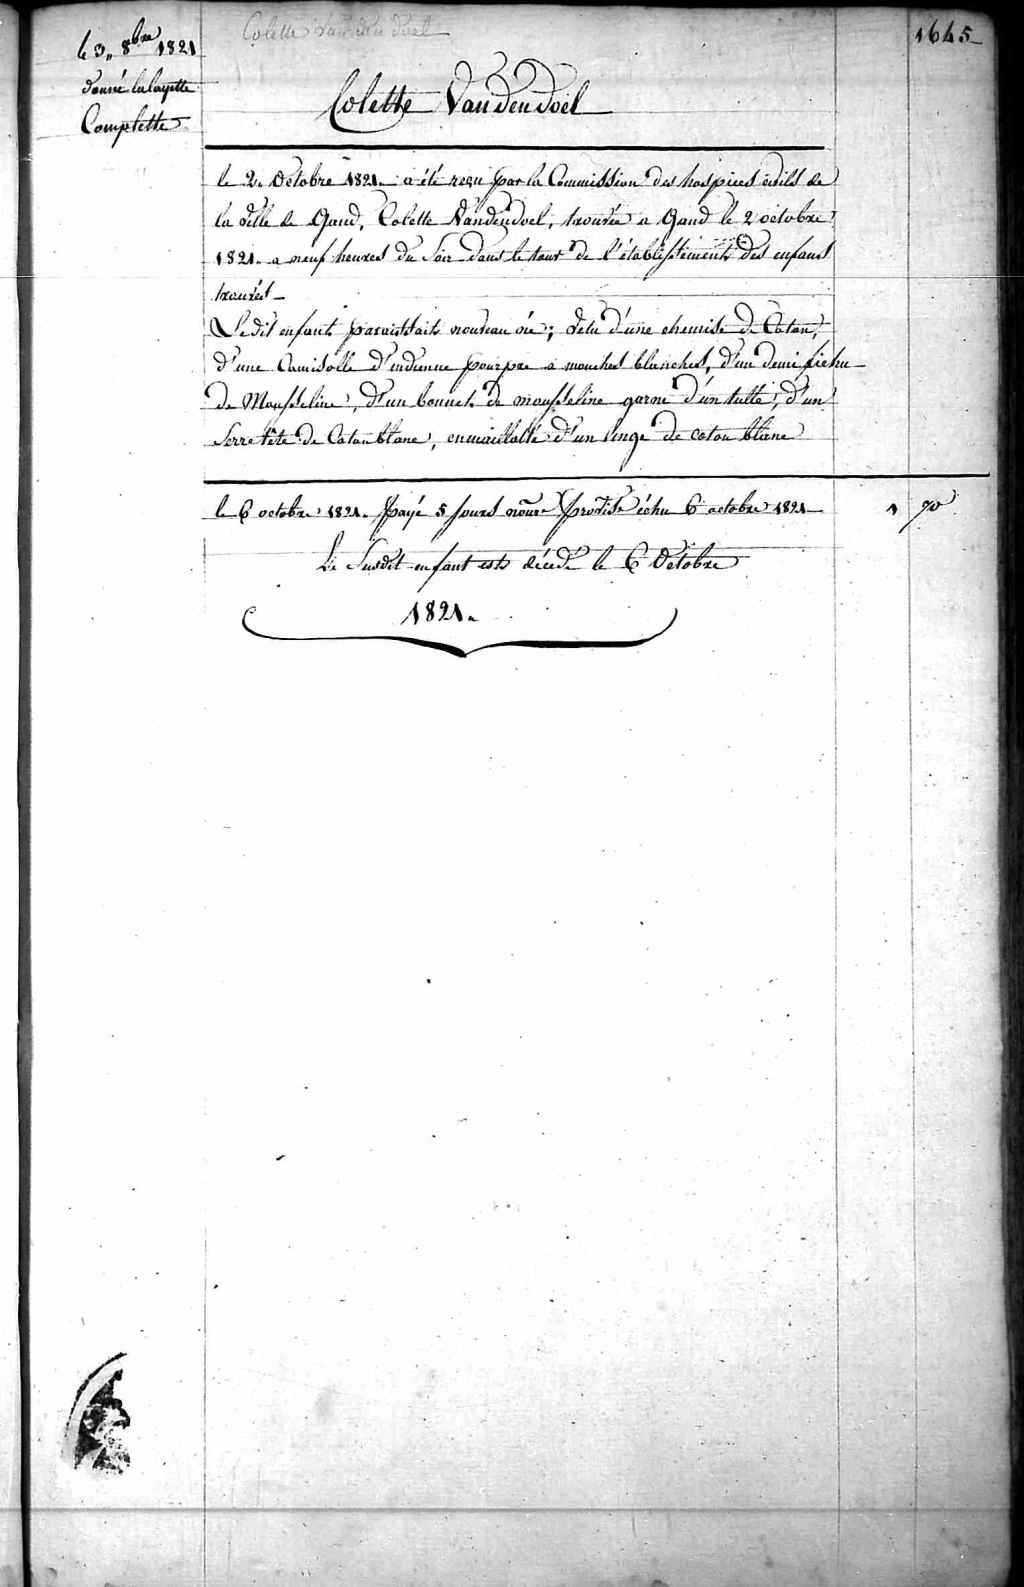 Colette Van den doel
1645
le 3,, 8bre 1821
donné la layette
Complette
Colette Vandendoël
le 2. Octobre 1821. a été reçu par la Commission des hospices civils de
la Ville de Gand, Colette Vandendoel, trouvée a Gand le 2 octobre
1821. a neuf heures du Soir dans le tour de l'établissement des enfans
trouvés
Ledit enfant paraissait nouveau née; vetu d'une chemise de Coton,
d'une Camisolle d'indienne pourpre a mouches blanches, d'un demi fichu
de Mousseline, d'un bonnet de mousseline garni d'un tulle, d'un
Serre tête de Coton blanc, enmaillotté d'un linge de coton blanc
le 6 octobre 1821. payé 5 jours nourre provise échu 6 octobre 1821 1 90
Le Susdit enfant est décédé le 6 Octobre
1821.